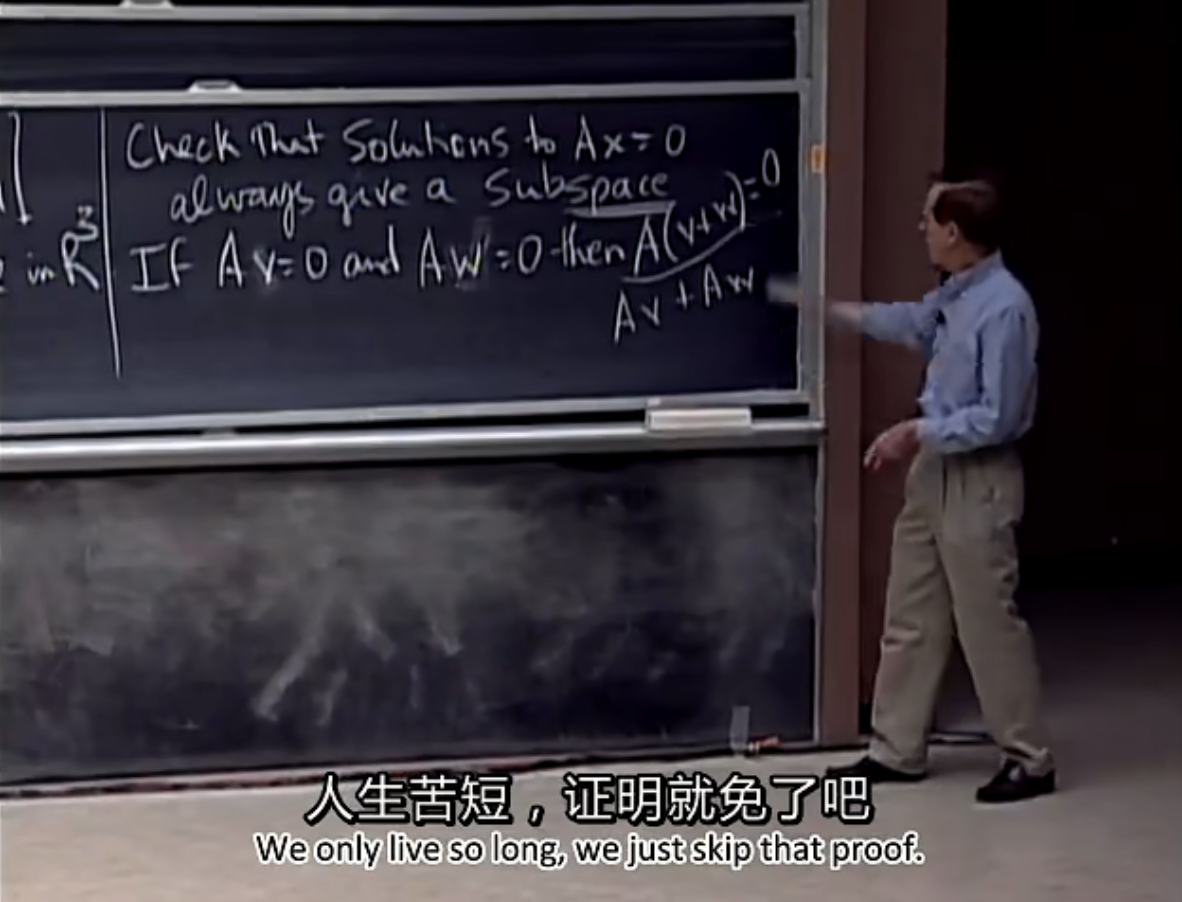 Check that Solutions to Ax=0
always give a subspace
in R³
If Av=0 and Aw=0 then A(v+w)=0
Av + Aw
人生苦短，证明就免了吧
We only live so long, we just skip that proof.